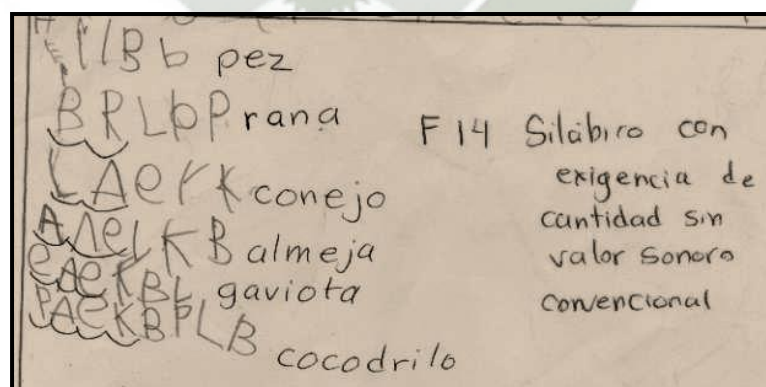 pez
BRLbP rana
LAerK conejo
almeja
gaviota
PAeKBPLB
cocodrilo
F 14 Silábico con
exigencia de
cantidad sin
valor sonoro
convencional